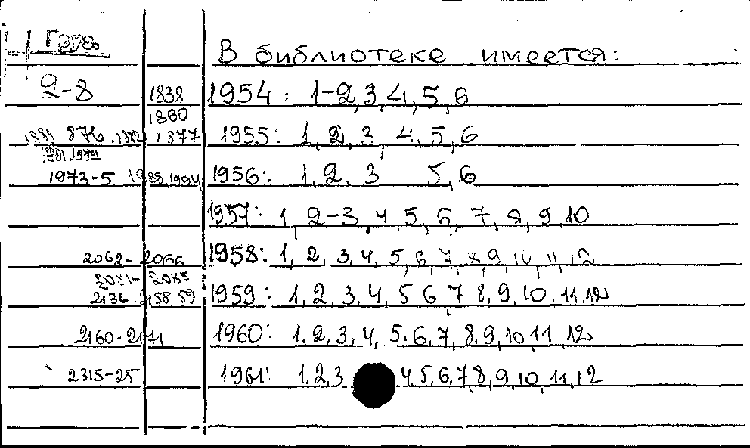 В библиотеке имеется:
2-8 1838 1954: 1-2, 3, 4, 5, 6
1860
876 1877 1955: 1, 2, 3, 4, 5, 6
1973-5 1956: 1, 2, 3 5, 6
1957: 1, 2-3, 4, 5, 6, 7, 8, 9, 10
2062-2066 1958: 1, 2, 3, 4, 5, 6, 7, 8, 9, 10, 11, 12
2136 1959: 1, 2, 3, 4, 5 6 7 8, 9, 10, 11, 12
2160-2171 1960: 1, 2, 3, 4, 5, 6, 7, 8, 9, 10 11, 12
2315-25 1961: 1, 2, 3 4, 5, 6, 7, 8, 9, 10, 11, 12